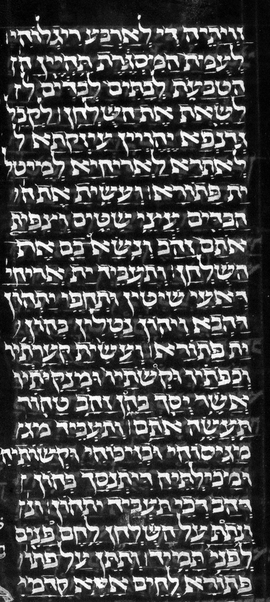 זויתיה די לארבע ריגלוהי
לעמת המסגרת תהיין הט
הטבעת לבתים לבדים לש
לשאת את השלחן ולקבל
גדנפא יהויין עיזקתא ל
לאתרא לאריחיא למיטל
ית פתורא ועשית את ה
הבדים עיצי שטים וצפית
אתם זהב ונשא בם את
השלחן ותעביד ית אריחי
דאעי שיטין ותחפי יתהון
דהבא ויהון נטלין בהון
ית פתורא ועשית קערתיו
וכפתיו וקשתיו ומנקיתיו
אשר יסך בהן זהב טהור
תעשה אתם ותעביד מג
מגיסוהי ובזיכוהי וקשותיה
ומכילתיה דיתנסך בהון
דהב דכי תעביד יתהון
ונתת על השלחן לחם פנים
לפני תמיד ותיתן על פתו
פתורא לחים אפיא קדמי